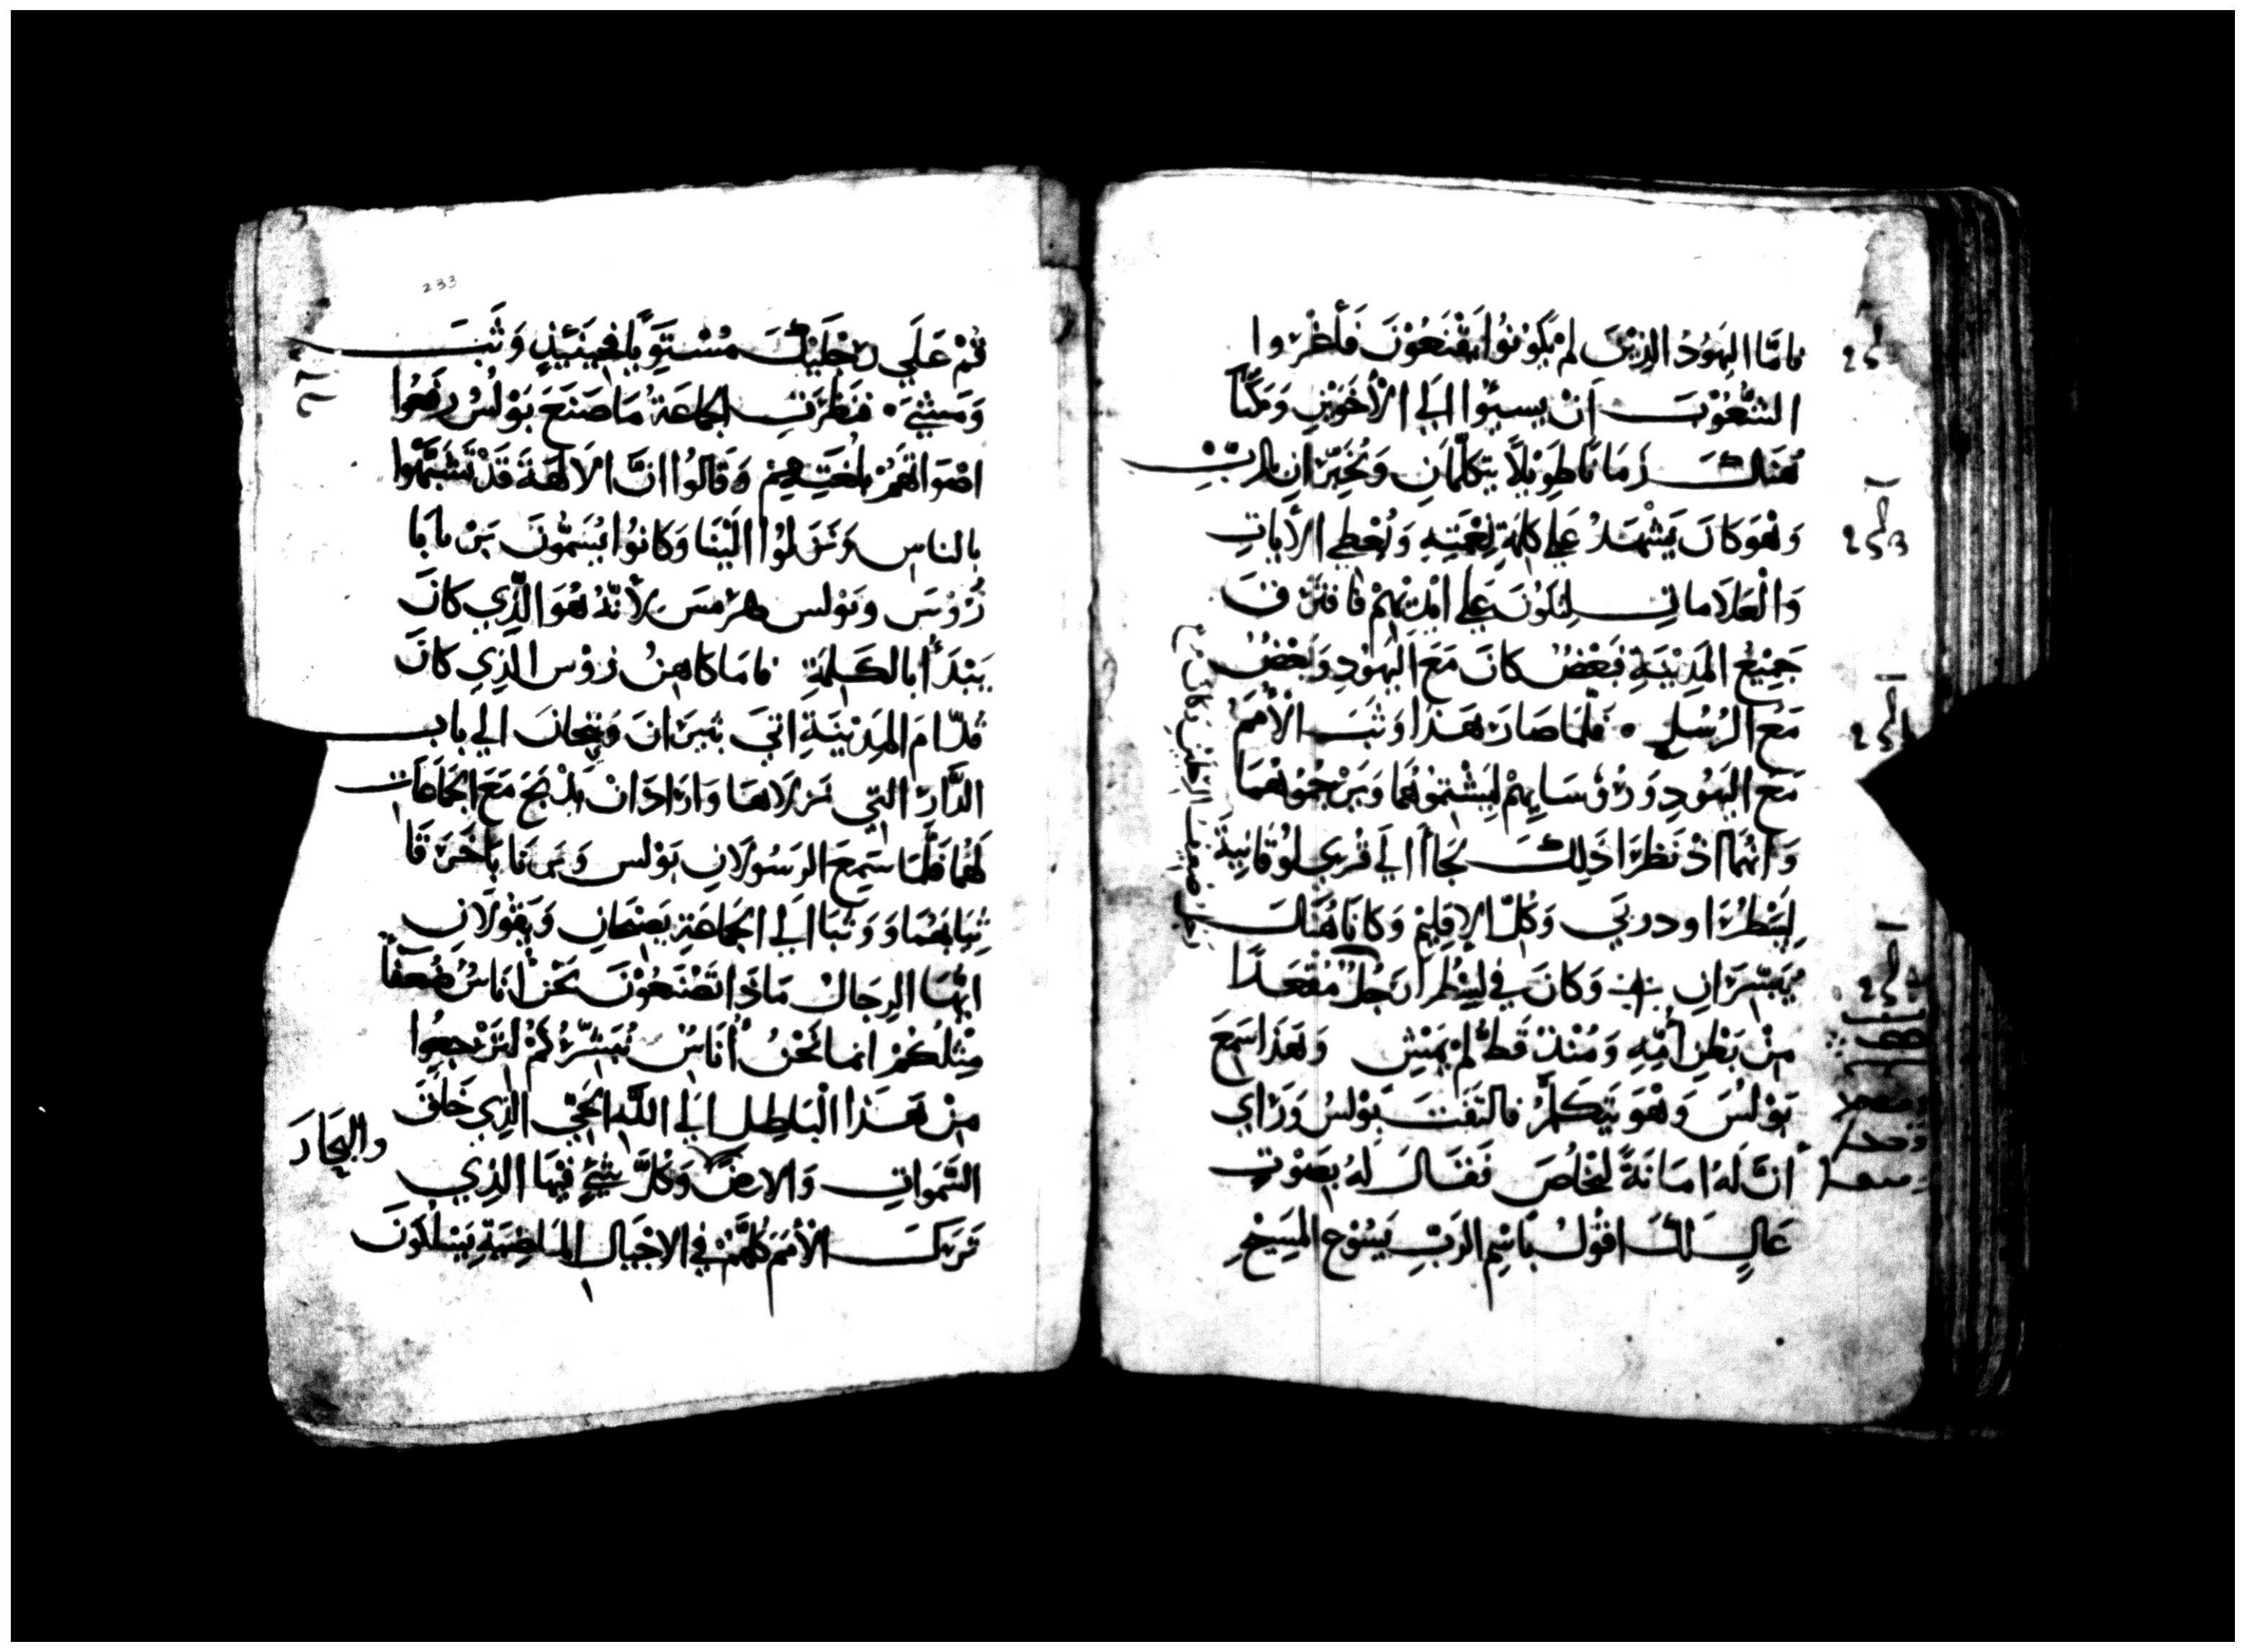 فامَّا اليَهُودُ الذِيْنَ لمْ يَكونُوا يَقْنَعُوْنَ فَأغْرَوا
الشُّعُوْبَ اَنْ يسيؤا اِلَي الأخَوَيْنِ وَمَكَثَا
هُنَاكَ زَمَانًا طَوِيْلاً يَتَكلَّمَانِ وَيُخْبِرَانِ بالربِّ
وَهْوَ كَانَ يَشْهَدُ عَلي كلمَةِ نِعْمَتِهِ وَيُعْطِي الأياتِ
وَالْعَلاَماتِ لِتكُوْنَ عَلي ايْدِيْهِمْ فافْتَرَقَ
جَمِيْعُ المَدِيْنَةِ فبَعْضٌ كانَ مَعَ اليَهُوْدِ وَبَعْضٌ
مَعَ الرُسُلِ ٠ فَلمَّا صَارَ هَذا وَثَبَ الأمَمُ
مَعَ اليَهُودِ وَرُؤسَايِهِمْ لِيَشْتمُوْهُمَا وَيَرْجُمُوْهُمَا
وَانهُمَا اذْ نَظَرَا ذَلِكَ لجَاأ الَي قُرَي لوُقَانِيَةَ
لِيَنْطُرَا ودربَي وَكُلّ الاِقلِيْمِ وَكانَا هُنَاكَ
يُبَشِّرَانِ وَكانَ في لِيْنْطُرا رَجُلٌ مُقْعَدًا
مِنْ بَطْنِ أُمِّهِ وَمُنْذُ قَطُّ لَمْ يَمْشِ وَهَذا سَمِعَ
بَوْلُسَ وَهْوَ يَتَكَلَّمُ فالتَفَتَ بَوْلسُ وَرَاي
أنَّ لَهُ امَانَةً لِيَخْلُصَ فَقَالَ لهُ بِصَوْتٍ
عَالٍ لكَ اقوْلُ بَاسْمِ الرَبِّ يَسُوْعِ المَسِيْحِ
233
قُمْ عَلَي رِجْلَيْكَ مُسْتَوِيًا فَحِيْنَئِذٍ وَثَبَ
وَمَشيَ ٠ فنَظَرَتِ الجَمَاعَةُ مَا صَنَعَ بَوْلُسُ رفَعُوا
اصْوَاتَهُمْ بلُغَتِهِمْ وَقَالُوا انَّ الاَلِهَةَ قَدْ تَشَبَّهُوا
بالناسِ وَنَزَلُوْا الَيْنَا وَكَانُوا يُسَمُّونَ بَرْنَابَا
زُوْسَ وبَوْلس هرْمسَ لأنّهُ هُوَ الَّذِي كانَ
يَبْتَدأ بالكَلمَةِ فامَا كاهِنُ زوْس الّذِي كانَ
قدّامَ المَدِيْنَةِ اتيَ بثيرَانَ وَتِيْجانَ الي بابِ
الدَّارِ التي نَزلاَهَا وَارَادَ انْ يَذْبَحَ مَعَ الجَمَاعَاتِ
لهُمَا فَلَمَّا سَمِعَ الرَسُوْلاَنِ بَوْلس وَبَرنَابَا خَرّقَا
ثِيَابَهُمَا وَوَثبَا اِلَي الجَمَاعَةِ يَصِيْحَانِ وَيَقُوْلاَنِ
ايُّهَا الرِجَالُ مَاذَا تَصْنَعُوْنَ نَحْنُ أُنَاسٌ ضُعَفَاً
مِثْلُكُمْ انما نَحْنُ أُنَاسٌ نُبَشِّرُ كُمْ لتَرْجِعُوا
مِنْ هَذا الْبَاطِلِ اِلَي اللَّهِ الحَيّ الذِي خَلَقَ
السَّمَوَاتِ وَالارضَ وَكُلَّ شَيْءٍ فِيْهَا الذِي
والبِحَارَ
تَرَكَ الأمَمَ كلَّهُمْ في الاجْيَالِ المَاضِيَةِ يَسْلُكُونَ